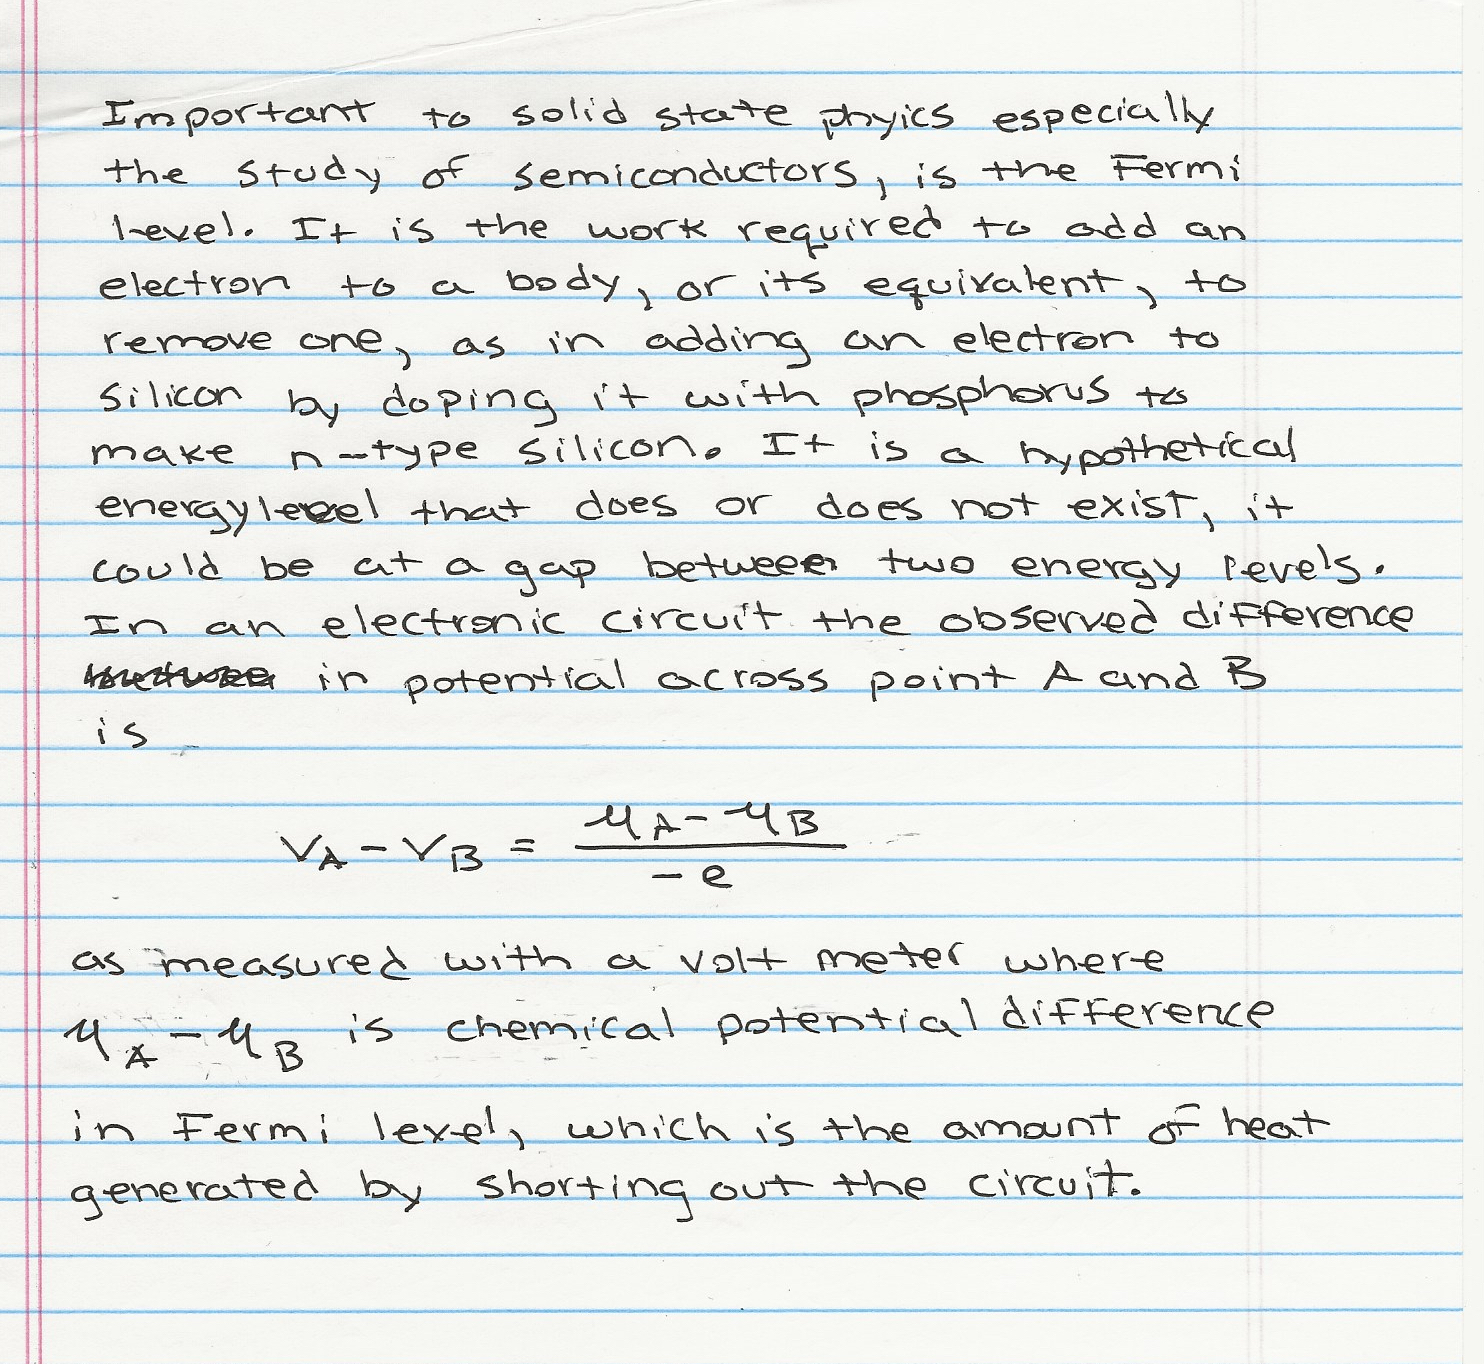 Important to solid state phyics especially
the study of semiconductors, is the Fermi
level. It is the work required to add an
electron to a body, or its equivalent, to
remove one, as in adding an electron to
silicon by doping it with phosphorus to
make n-type silicon. It is a hypothetical
energy level that does or does not exist, it
could be at a gap between two energy levels.
In an electronic circuit the observed difference
in potential across point A and B
is
V_A - V_B = \frac{μ_A - μ_B}{-e}
as measured with a volt meter where
μ_A - μ_B is chemical potential difference
in Fermi level, which is the amount of heat
generated by shorting out the circuit.